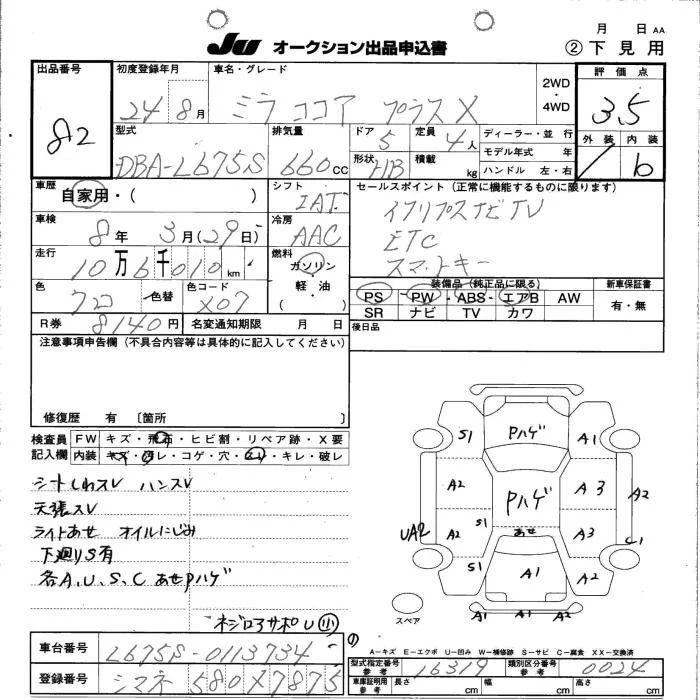 JU オークション出品申込書
月 日 AA
② 下見用
出品番号 82
初度登録年月 24 8月
車名・グレード ミラ ココア プラス X
2WD・4WD
評価点 3.5
外装 内装 6
型式 DBA-L675S
排気量 660cc
ドア 5 定員 4人
形状 HB 積載 kg
ディーラー・並行
モデル年式 年
ハンドル 左・右
車歴 自家用・( )
シフト IAT
車検 8年 3月(29日)
冷房 AAC
走行 10万6千010km
燃料 ガソリン・軽油 ( )
色 色替 カラーコード X07
R券 8140円
名変通知期限 月 日
セールスポイント(正常に機能するものに限ります)
ナビTV
ETC
スマートキー
装備品(純正品に限る)
PS・PW・ABS・エアB AW
SR ナビ TV カワ
新車保証書
有・無
後日品
注意事項申告欄(不具合内容等は具体的に記入してください)
修復歴 有 〔箇所 〕
検査員記入欄
FW キズ・飛石・ヒビ割・リペア跡・X要
内装 キズ・汚レ・コゲ・穴・スレ・キレ・破レ
シートしわスレ ハンスレ
天張スレ
ライトあせ オイルにじみ
下廻りS有
各A、U、S、C あせPハゲ
S1 Pハゲ A1
A2 Pハゲ A3 A2
UA2 A2 S1 あせ A3 C1
S1 A1 A2
A2 A1 A2
スペア
車台番号 L675S-0113734
登録番号 シマネ 580 X 7875
A-キズ E-エクボ U-凹み W-補修跡 S-サビ C-腐食 XX-交換済
型式指定番号 参考 16319
類別区分番号 参考 0024
車庫証明用 参考 長さ cm 幅 cm 高さ cm